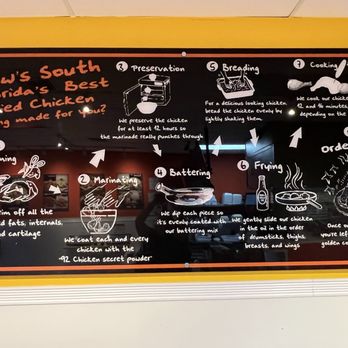 w's South
rida's Best
ied Chicken
ng made for you?
3 Preservation
We preserve the chicken
for at least 12 hours so
the marinade really punches through
5 Breading
For a delicious looking chicken
bread the chicken evenly by
lightly shaking them.
7 Cooking
We cook our chick
12 and 16 minutes
depending on the
ning
rim off all the
d fats, internals,
nd cartilage
2 Marinating
We coat each and every
chicken with the
-92 Chicken secret powder
4 Battering
We dip each piece so
it's evenly coated with
our battering mix
6 Frying
We gently slide our chicken
in the oil in the order
of drumsticks, thighs,
breasts, and wings
Orde
Once ou
you're left
golden co